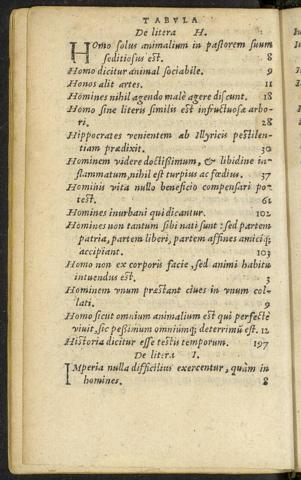 TABVLA
De litera H.
HOmo solus animalium in pastorem suum
seditiosus est. 8
Homo dicitur animal sociabile. 9
Honos alit artes. 11
Homines nihil agendo malè agere discunt. 18
Homo sine literis similis est infructuosæ arbo-
ri. 28
Hippocrates venientem ab Illyricis pestilen-
tiam prædixit. 30
Hominem videre doctissimum, & libidine in-
flammatum, nihil est turpius ac fœdius. 37
Hominis vita nullo beneficio compensari po-
test. 61
Homines inurbani qui dicantur. 102
Homines non tantum sibi nati sunt: sed partem
patria, partem liberi, partem affines amiciq;
accipiant. 103
Homo non ex corporis facie, sed animi habitu
intuendus est. 3
Hominem vnum præstant ciues in vnum col-
lati. 9
Homo sicut omnium animalium est qui perfectè
viuit, sic pessimum omniumq; deterrimũ est. 12
Historia dicitur esse testis temporum. 197
De litera I.
IMperia nulla difficilius exercentur, quàm in
homines. 8